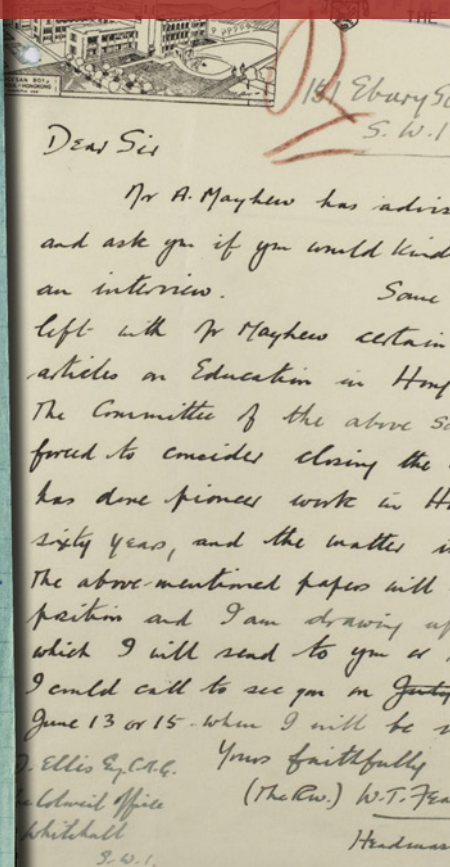 THE
151 Ebury
S.W.1
Dear Sir
Mr A. Mayhew has advis
and ask you if you would kind
an interview. Some
left with Mr Mayhew certain
articles on Education in Hong
The Committee of the above Sc
forced to consider closing the
has done pioneer work in H
sixty years, and the matter i
The above-mentioned papers will
position and I am drawing up
which I will send to you or
I could call to see you on July
June 13 or 15 when I will be
Yours faithfully
(The Rev.) W.T. Fea
Headmas
D. Ellis Esq. C.M.G.
Colonial Office
Whitehall
S.W.1.